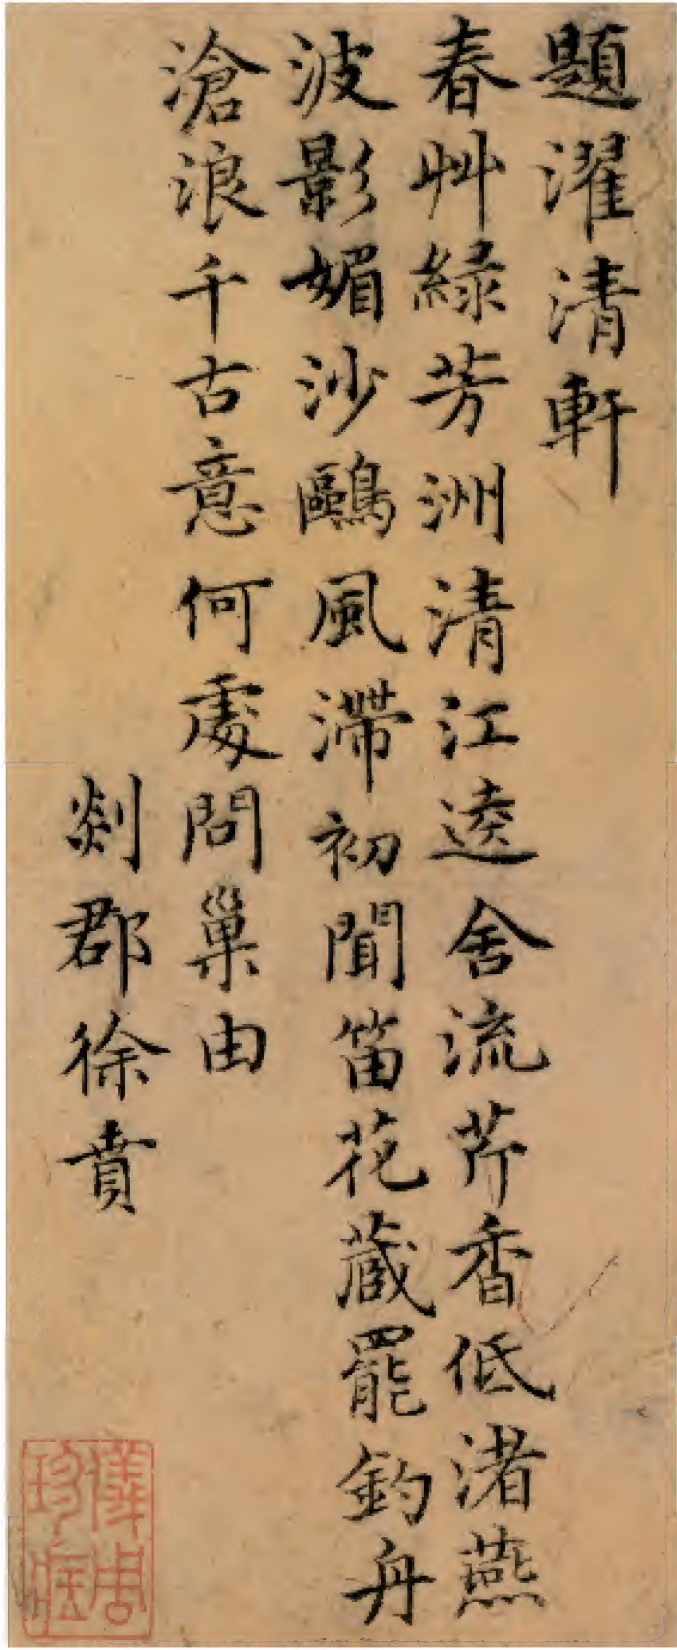 題濯清軒
春艸緑芳洲清江遶舍流芹香低渚燕
波影媚沙鷗風滯初聞笛花藏罷釣舟
滄浪千古意何處問巢由
剡郡徐賁
儀周珍藏